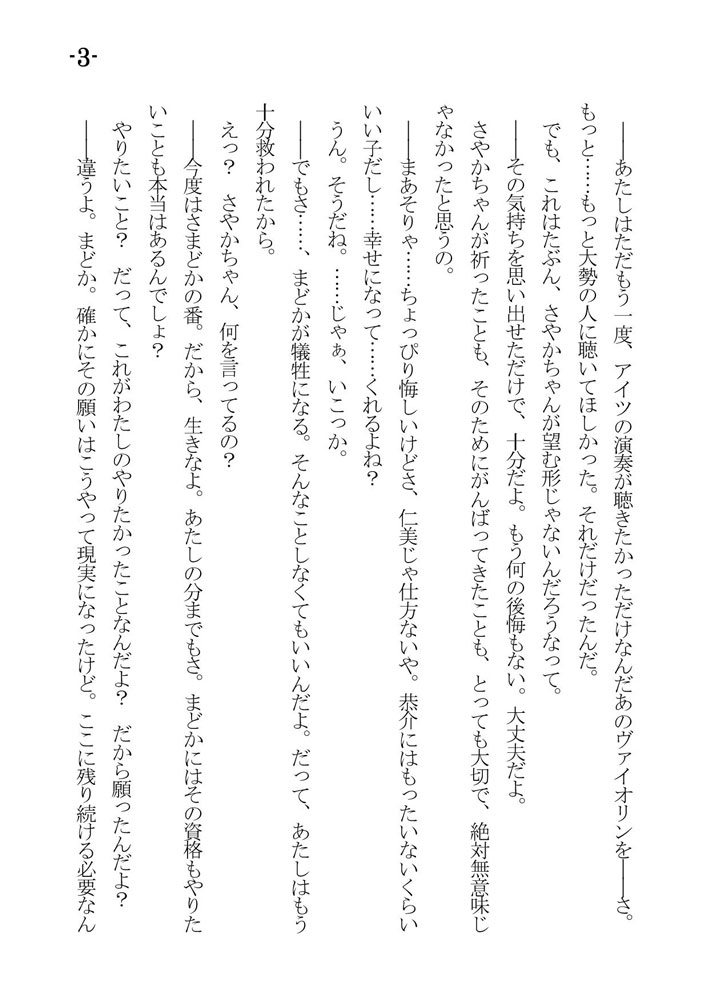 -3-
――あたしはただもう一度、アイツの演奏が聴きたかっただけなんだあのヴァイオリンを――さ。
もっと……もっと大勢の人に聴いてほしかった。それだけだったんだ。
でも、これはたぶん、さやかちゃんが望む形じゃないんだろうなって。
――その気持ちを思い出せただけで、十分だよ。もう何の後悔もない。大丈夫だよ。
さやかちゃんが祈ったことも、そのためにがんばってきたことも、とっても大切で、絶対無意味じ
ゃなかったと思うの。
――まあそりゃ……ちょっぴり悔しいけどさ、仁美じゃ仕方ないや。恭介にはもったいないくらい
いい子だし……幸せになって……くれるよね？
うん。そうだね。……じゃぁ、いこっか。
――でもさ……、まどかが犠牲になる。そんなことしなくてもいいんだよ。だって、あたしはもう
十分救われたから。
えっ？　さやかちゃん、何を言ってるの？
――今度はさまどかの番。だから、生きなよ。あたしの分までもさ。まどかにはその資格もやりた
いことも本当はあるんでしょ？
やりたいこと？　だって、これがわたしのやりたかったことなんだよ？　だから願ったんだよ？
――違うよ。まどか。確かにその願いはこうやって現実になったけど。ここに残り続ける必要なん